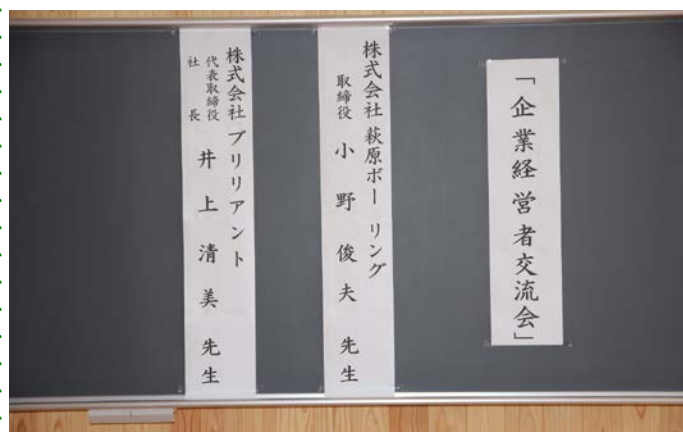 「企業経営者交流会」
株式会社 萩原ボーリング
取締役 小野俊夫 先生
株式会社 ブリリアント
代表取締役
社長 井上清美 先生